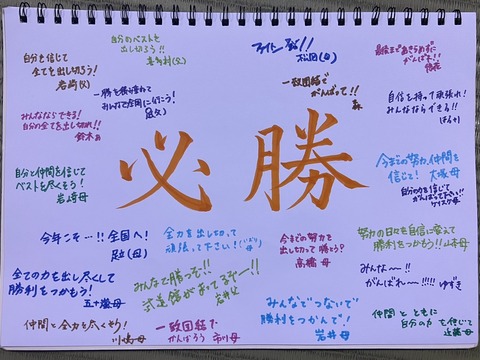 自分を信じて
全てを出し切ろう!
岩崎(父)
自分のベストを
出し切ろう!!
ファイトー発!!
松岡(母)
最後まであきらめずに
がんばれ!!
一勝を積み重ねて
みんなで全国に行こう!
一致団結で
がんばって!!
森
自信を持って頑張れ!
みんなならできる!!
みんなならできる!
自分の全てを出し切れ!!
鈴木
必勝
自分と仲間を信じて
ベストを尽くそう!
岩崎母
今までの努力、仲間を
信じて! 大塚母
自分の力を信じて
がんばって下さい!!
ケイスケ母
今年こそ…!! 全国へ!
足立(母)
全力を出し切って
頑張って下さい!
今までの努力を
出し切って勝とう?
高橋 母
努力の日々を自信に変えて
勝利をつかもう!! 山本母
全ての力を出し尽くして
勝利をつかもう!
五十嵐母
みんなで勝つぞ!!
武道館がまってるぞー!!
岩井父
みんな〜!!
がんばれ〜!!!!! ゆずき
みんなでつないで
勝利をつかんで!
岩井母
仲間と全力を尽くそう!
川嶋母
一致団結だ
がんばろう 市川母
仲間 と ともに
自分の力 を 信じて
近藤母